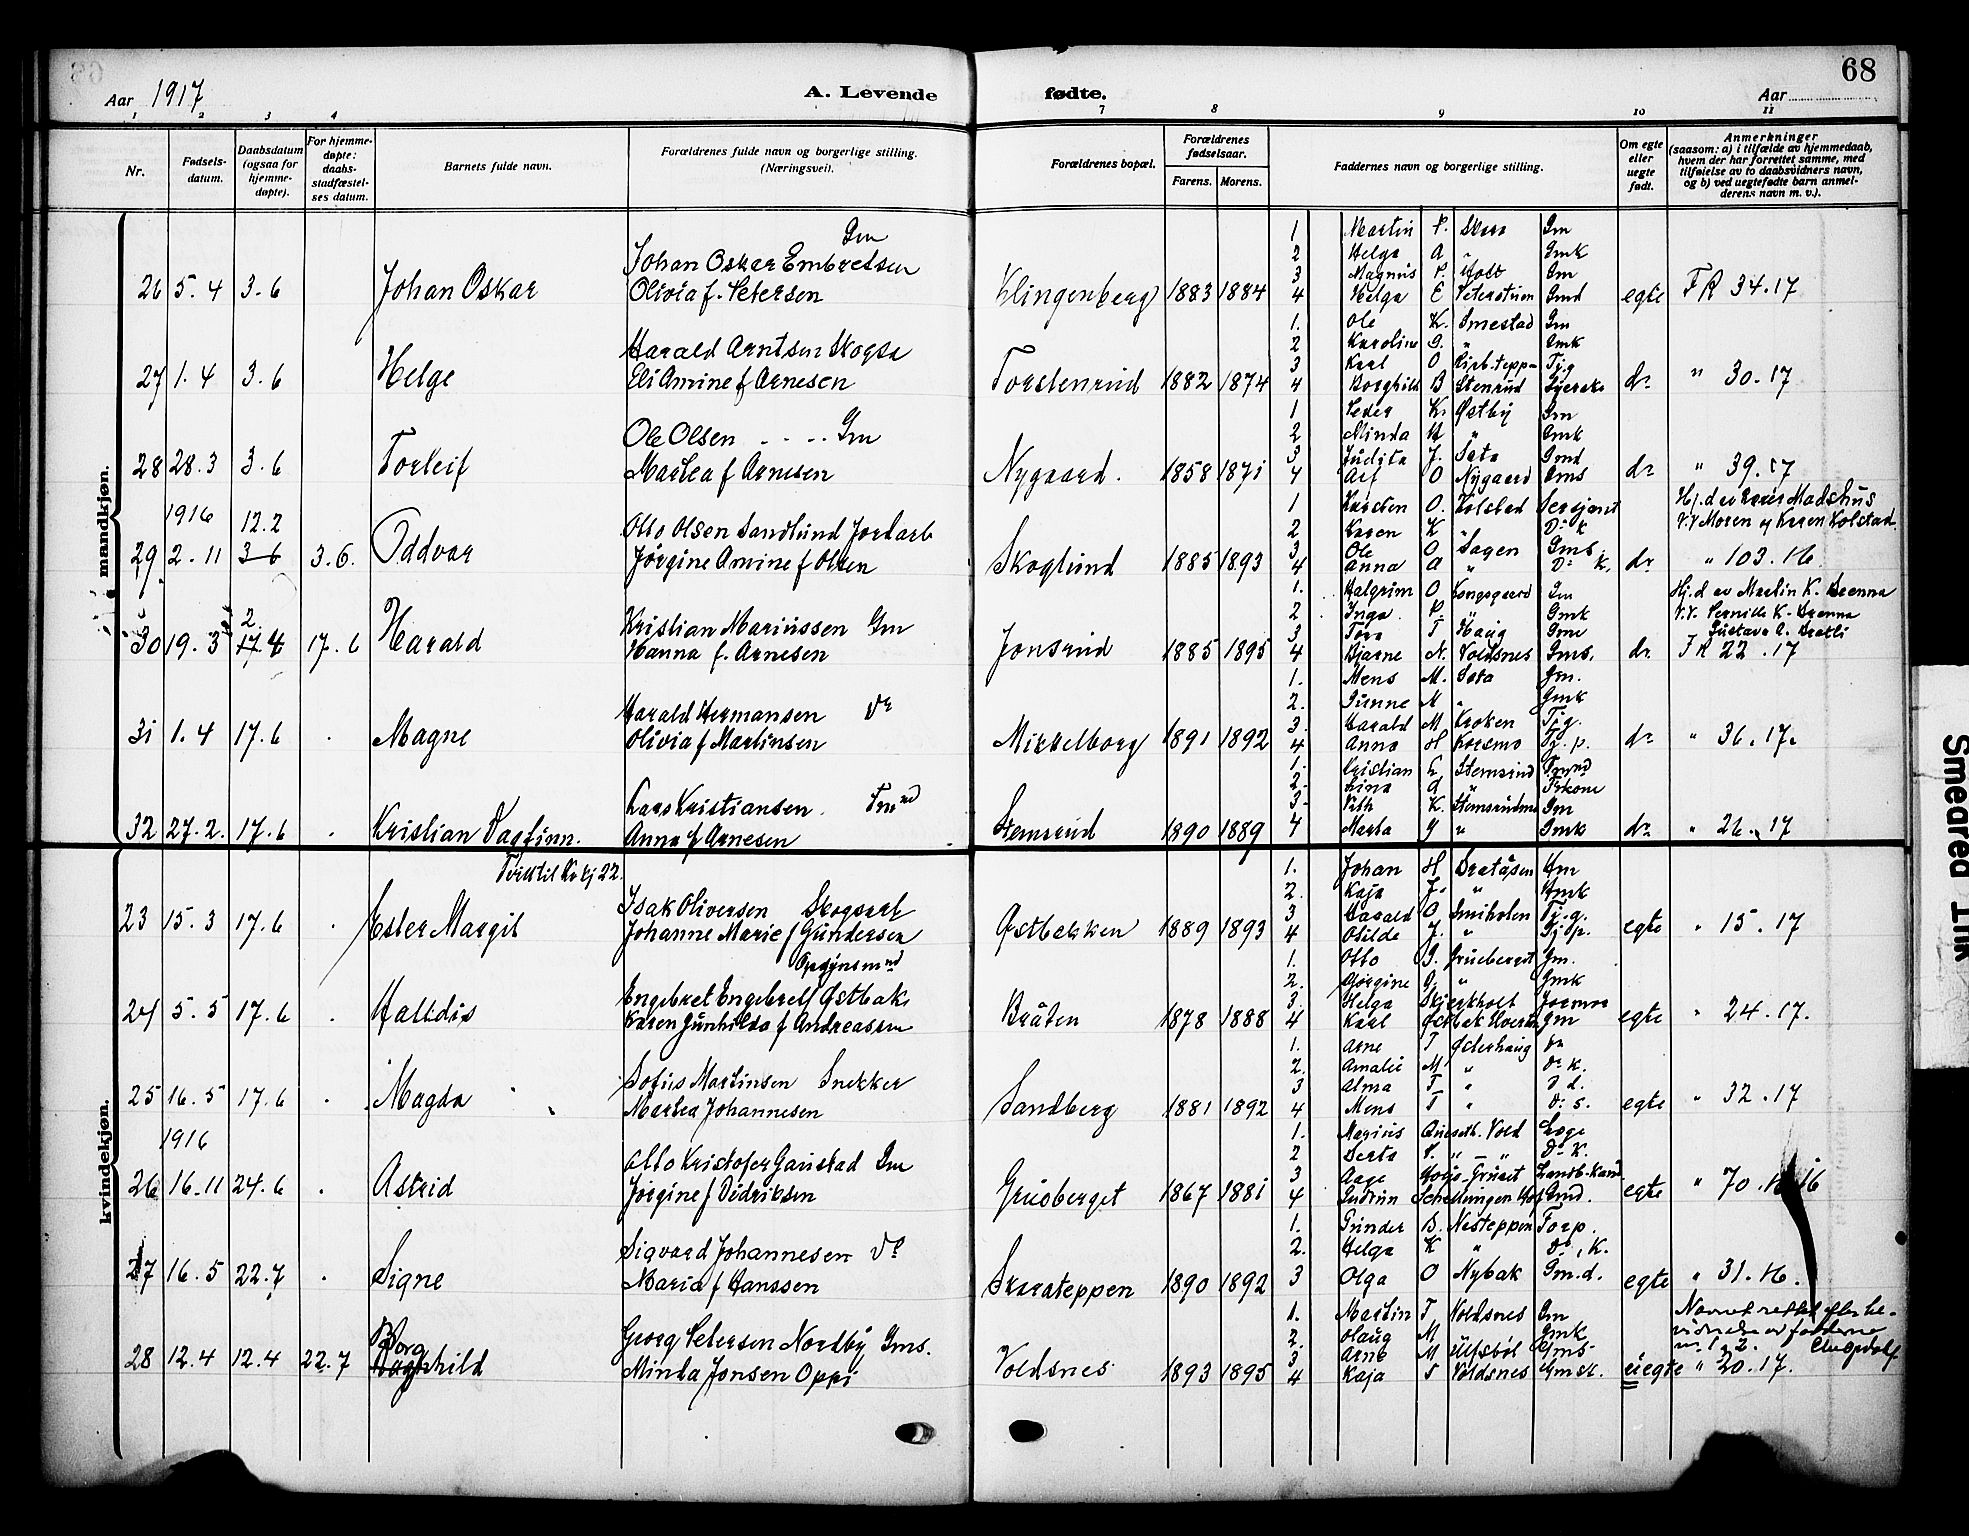 68
Aar 1917
A. Levende
fødte.
Aar
1 2 3 4 7 8 9 10 11
Nr.
Fødselsdatum.
Daabsdatum (ogsaa for hjemmedøpte).
For hjemmedøpte: daabsstadfæstelses datum.
Barnets fulde navn.
Forældrenes fulde navn og borgerlige stilling. (Næringsvei).
Forældrenes bopæl.
Forældrenes fødselsaar.
Farens. Morens.
Faddernes navn og borgerlige stilling.
Om egte eller uegte født.
Anmerkninger (saasom: a) i tilfælde av hjemmedaab, hvem der har forrettet samme, med tilføielse av to daabsvidners navn, og b) ved uegtefødte barn anmelderens navn m. v.).
mandkjøn.
Gm
Johan Oskar Embretsen
26 5.4 3.6 Johan Oskar Olivia f. Petersen Klingenberg 1883 1884 egte FR 34.17
1 Martin P. Gm
2 Helga A " Gmk
3 Magnus P. Holt Gm
4 Helga E Peterstuen Gmd
Harald Arntsen Skogsa
27 1.4 3.6 Helge Eli Amine f Arnesen Torstenrud 1882 1874 do " 30.17
1. Ole K. Smestad Gm
2 Karoline G. " Gmk
3 Karl O Tjg
4 Borghild B Stenrud Syerske
Ole Olsen Gm
28 28.3 3.6 Torleif Martea f Arnesen Nygaard. 1858 1871 do " 39.17
1 Peder K. Østby Gm
2 Minda H " Gmk
3 Judita J. Sata Gmd
4 Alf O Nygaard Gms
1916 12.2 Otto Olsen Sandlund Jordarb
29 2.11 3-6 3.6. Oddvar Jørgine Amine f Olsen Skoglund 1885 1893 do " 103.16
1 Karsten O. Kolstad Sersjant
2 Karen K " Do K
3 Ole O Sagen Gms.
4 Anna A " Do K.
Hj.d av Madshus
V.V Moren og Karen Kolstad
Kristian Mariussen Gm
30 19.3 17.4 17.6 Harald Hanna f. Arnesen Jonsrud 1885 1895 do FR 22.17
1. Halgrim O Kongsgaard Gm
2 Inga P. " Gmk
3 Tora T Haug Gm
4 Bjarne N. Voldsnes Gms.
Hj.d av Martin K. Brenna
V.V. Pernille K. Brenna
Harald Hermansen Do
31 1.4 17.6 . Magne Olivia f Martinsen Mikkelborg 1891 1892 do " 36.17.
1. Mens M. Sata Gm.
2. Gunne M " Gmk
3. Harald M Kroken Tjg.
4 Anna H Korsmo Tj.p.
Lars Kristiansen.
32 27.2. 17.6 . Kristian Dagfinn. Anna f Arnesen Stemsrud 1890 1889 do " 26.17
1. Kristian L. Stemsrud
2. Lina A "
3. K. Stemsrudmo Gm
4 Marta G " Gmk
kvindekjøn.
Isak Oliversen Skogsarb
23 15.3 17.6 . Ester Margit Johanne Marie f Gundersen Østbakken 1889 1893 egte " 15.17
1. Johan H Bratåsen Hm
2. Kaja J. " Hmk
3 Harald O Smiholen Tj.g.
4 Otilde J. " Tj.p.
Opsynsmnd
Engebret Engebrets Østbak
24 5.5 17.6 . Halldis Karen Gunhilda f Andreassen Bråten 1878 1888 egte " 24.17.
1. Otto G. Grueberget Gm.
2. Gørgine O. " Gmk
3. Helga Skjærholt
4 Karl Østbak Gm
Sofus Martinsen Snekker
25 16.5 17.6 . Magda Martea Johannesen Sandberg 1881 1892 egte " 32.17
1. Arne T Østerhaug Do
2. Amalie M " Do k.
3 Alma T " D d.
4 Mens T " Do s.
1916
Otto Kristofer Garstad Gm
26 16.11 24.6 . Astrid Jørgine f Didriksen Grusberget 1867 1881 egte " 70.16
1. Marius Vold Læge
2 Berta P. " " Do K.
3 Aage Gruset
4 Gudrun Gmd.
Sigvard Johannesen Do
27 16.5 22.7 . Signe Maria f Hanssen Skarateppen 1890 1892 egte " 31.16.
1. Gunder B. Nesteppen Torp.
2. Helga K " Do, K.
3 Olga O Nybak Gm.d.
Georg Petersen Nordby Gms.
Borg
28 12.4 12.4 22.7 hild Minda Jonsen Oppi Voldsnes 1893 1895 uegte " 20.17.
1. Martin T. Voldsnes Gm
2. Olaug M. " Gmk
3. Arne M Ulfsbøl Gms
4 Kaja T Voldsnes Gmsk.
Navnet rettet efter be-
vidnelse av fadderne
nr. 1 & 2.
Smeared Ink